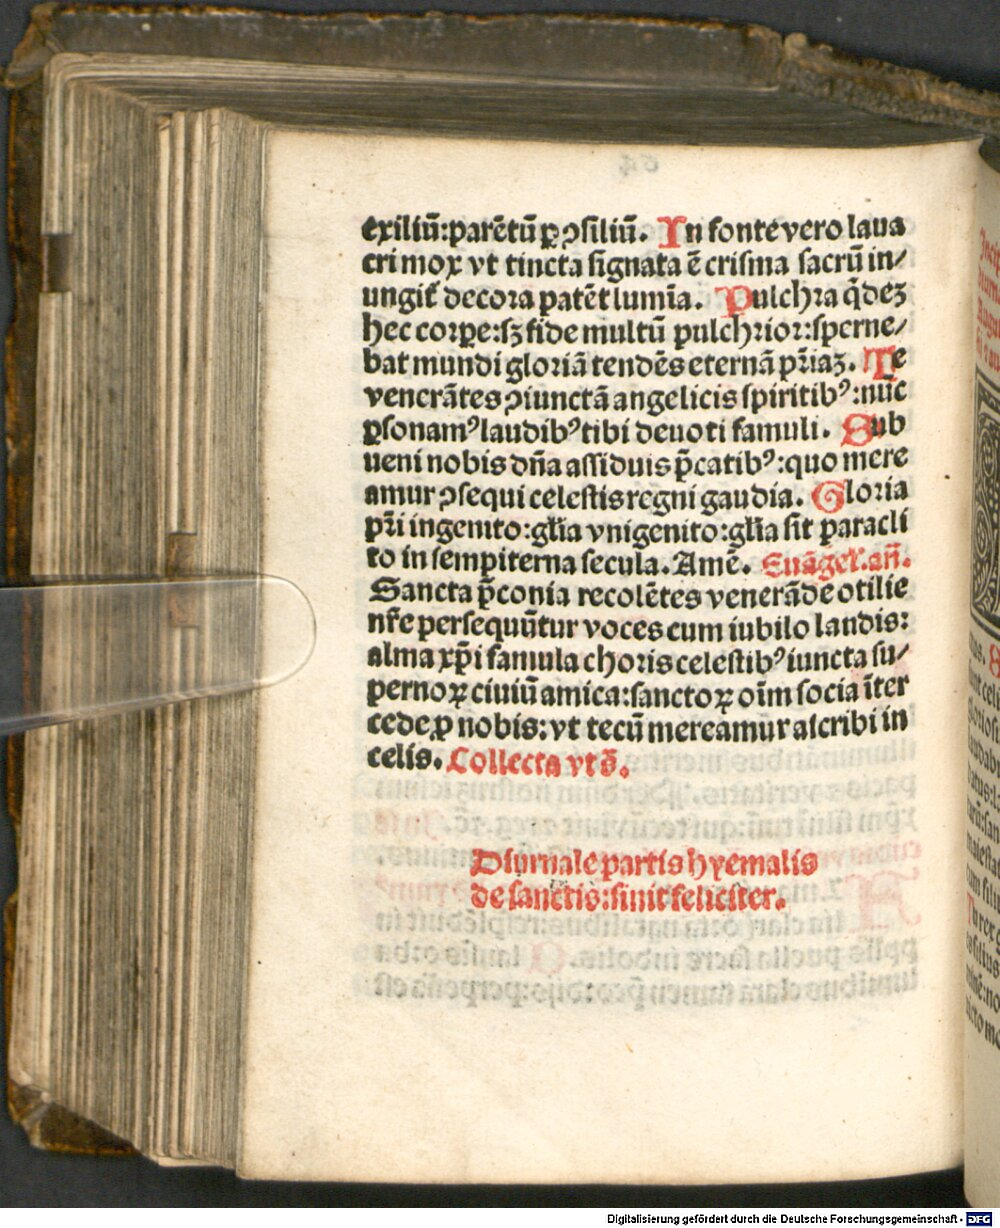 exiliū:parētū ꝑ ꝯsiliū. In fonte vero laua
cri mox vt tincta signata ē crisma sacrū in/
ungit̄ decora patēt lumīa. Pulchra q̄dez
hec corpe:sꝫ fide multū pulchrior:sperne/
bat mundi gloriā tendēs eternā pr̄iaz. Te
venerātes ꝯiunctā angelicis spiritibꝰ:nūc
ꝑsonamꝰ laudibꝰ tibi deuoti famuli. Sub
ueni nobis dn̄a assiduis p̄catibꝰ:quo mere
amur ꝯsequi celestis regni gaudia. Gloria
pr̄i ingenito:gl̄ia vnigenito:gl̄ia sit paracli
to in sempiterna secula. Amē. Euāgel̄. an̄.
Sancta p̄conia recolētes venerāde otilie
nr̄e persequūtur voces cum iubilo landis:
alma xp̄i famula choris celestibꝰ iuncta su/
pernoꝝ ciuiū amica:sanctoꝝ oīm socia īter
cede ꝓ nobis: vt tecū mereamur ascribi in
celis. Collecta vts̄.
Diurnale partis hyemalis
de sanctis: finit feliciter.
Digitalisierung gefördert durch die Deutsche Forschungsgemeinschaft - DFG